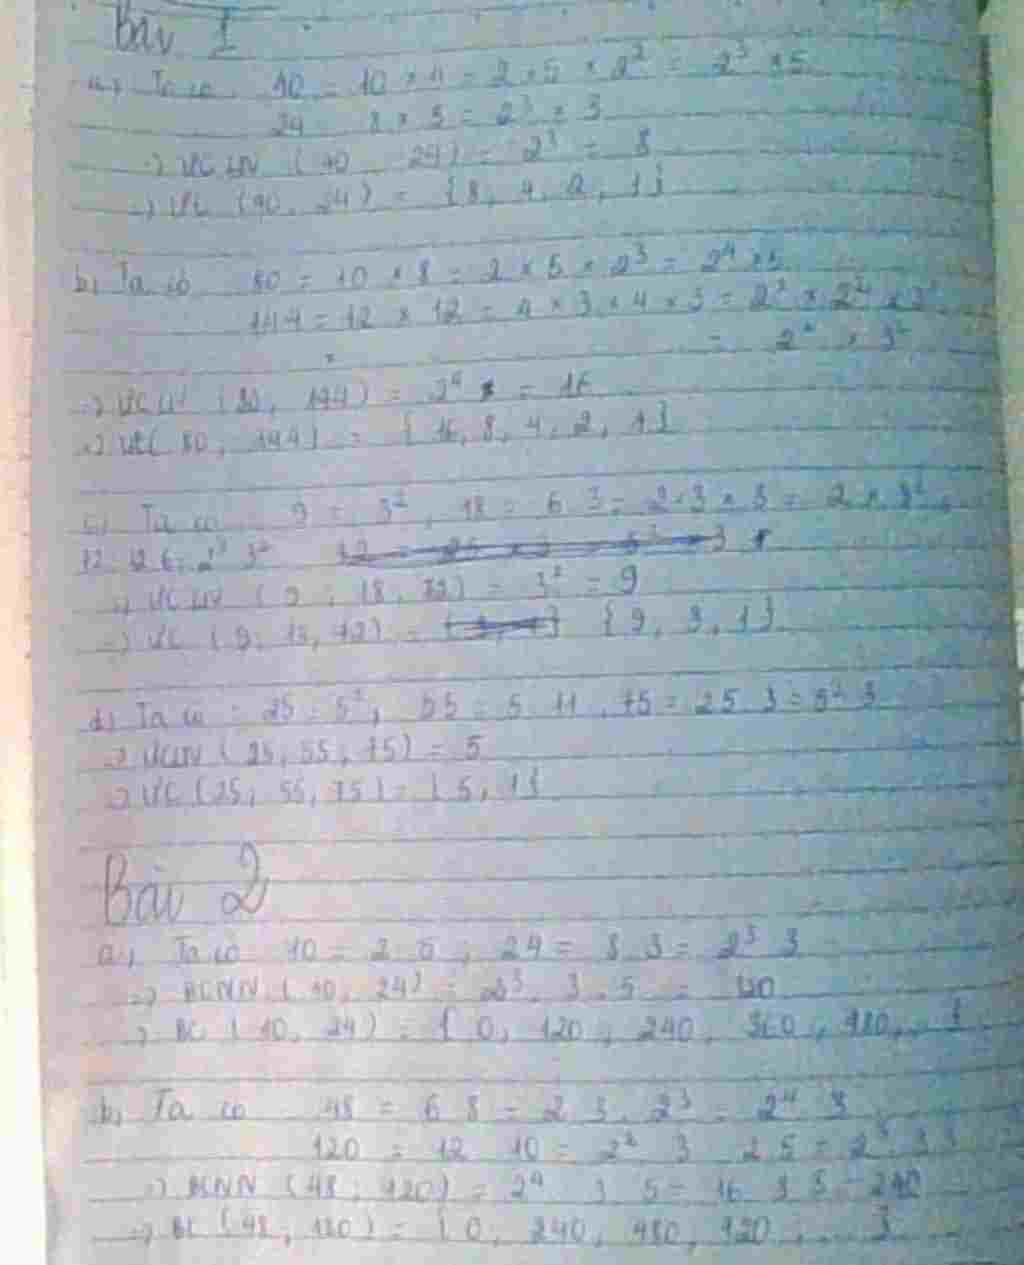 Bài 1
a, Ta có 40 = 10 × 4 = 2 × 5 × 2² = 2³ × 5
24 8 × 3 = 2³ × 3
=> ƯCLN (40 24) = 2³ = 8
=> ƯC (40, 24) = {8, 4, 2, 1}
b, Ta có 80 = 10 × 8 = 2 × 5 × 2³ = 2⁴ × 5
144 = 12 × 12 = 4 × 3 × 4 × 3 = 2² × 2² × 3²
= 2⁴ × 3²
=> ƯCLN (80, 144) = 2⁴ = 16
=> ƯC (80, 144) = {16, 8, 4, 2, 1}
c, Ta có 9 = 3², 18 = 6 3 = 2 × 3 × 3 = 2 × 3²,
72 12 6 = 2³ 3²
=> ƯCLN (9, 18, 72) = 3² = 9
=> ƯC (9, 18, 72) = {9, 3, 1}
d, Ta có : 25 = 5², 55 = 5 11, 75 = 25 3 = 5² 3
=> ƯCLN (25, 55, 75) = 5
=> ƯC (25, 55, 75) = {5, 1}
Bài 2
a, Ta có 10 = 2 5, 24 = 8 3 = 2³ 3
=> BCNN (10, 24) = 2³ . 3 . 5 = 120
=> BC (10, 24) = {0, 120, 240, 360, 480, }
b, Ta có 48 = 6 8 = 2 3 . 2³ = 2⁴ 3
120 = 12 10 = 2² 3 2 5 = 2³ . 3 5
=> BCNN (48, 120) = 2⁴ 3 5 = 16 3 5 = 240
=> BC (48, 120) = {0, 240, 480, 720, ... }